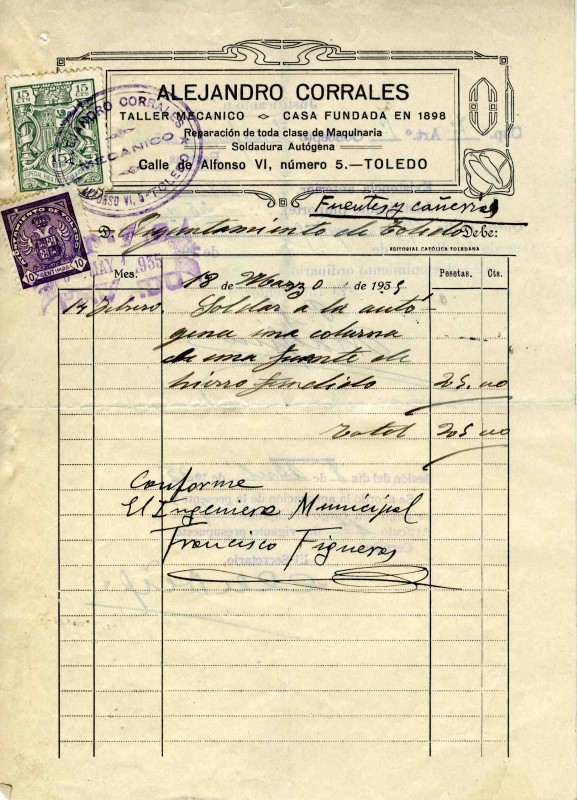 15 CTS 15 CTS
ALEJANDRO CORRALES
TALLER MECANICO CASA FUNDADA EN 1898
Reparación de toda clase de Maquinaria
Soldadura Autógena
Calle de Alfonso VI, número 5.—TOLEDO
ALEJANDRO CORRALES
MECANICO
ALFONSO VI, 5-TOLEDO
Fuentes y cañerias
D. Ayuntamiento de Toledo Debe:
EDITORIAL CATÓLICA TOLEDANA
AYUNTAMIENTO DE TOLEDO
10 CENTIMOS 10
MAY 1935
Mes. 13 de Marzo de 1935 Pesetas. Cts.
14 Febrero. Soldar a la autó-
gena una coluna
de una fuente de
hierro fundido 25,00
Total 25,00
Conforme
El Ingeniero Municipal
Francisco Figueras